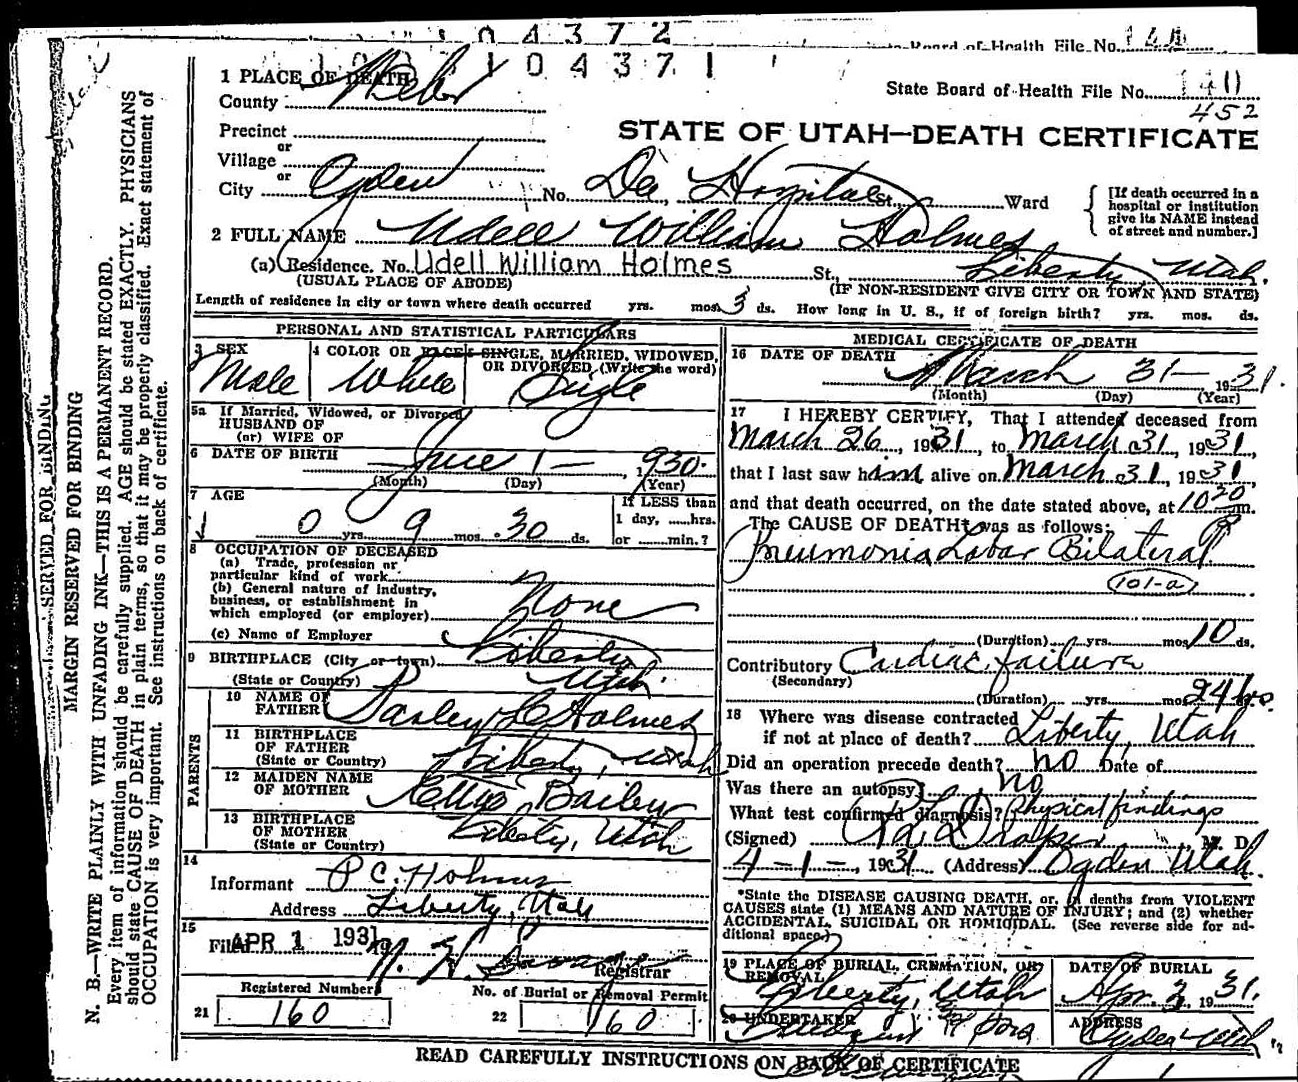 0 4 3 7 2
Board of Health File No. 140
1 0 4 3 7 1
1 PLACE OF DEATH
County Weber
State Board of Health File No. 140
452
Precinct
or
Village
or
City Ogden No. Dee Hospital St., Ward
STATE OF UTAH—DEATH CERTIFICATE
[If death occurred in a hospital or institution give its NAME instead of street and number.]
2 FULL NAME Udell William Holmes
(a) Residence. No. Udell William Holmes St., Liberty Utah.
(USUAL PLACE OF ABODE) (IF NON-RESIDENT GIVE CITY OR TOWN AND STATE)
Length of residence in city or town where death occurred yrs. mos. 3 ds. How long in U. S., if of foreign birth? yrs. mos. ds.
PERSONAL AND STATISTICAL PARTICULARS
3 SEX Male
4 COLOR OR RACE White
5 SINGLE, MARRIED, WIDOWED, OR DIVORCED (Write the word) Single
5a If Married, Widowed, or Divorced
HUSBAND OF
(or) WIFE OF
6 DATE OF BIRTH June 1 — 1930.
(Month) (Day) (Year)
7 AGE
0 yrs. 9 mos. 30 ds.
If LESS than
1 day, ......hrs.
or ......min.?
8 OCCUPATION OF DECEASED
(a) Trade, profession or
particular kind of work
(b) General nature of industry,
business, or establishment in
which employed (or employer) None
(c) Name of Employer
9 BIRTHPLACE (City or town) Liberty
(State or Country) Utah.
PARENTS
10 NAME OF FATHER Parley C Holmes
11 BIRTHPLACE OF FATHER Liberty, Utah
(State or Country)
12 MAIDEN NAME OF MOTHER Bailey
13 BIRTHPLACE OF MOTHER Liberty, Utah
(State or Country)
14
Informant P C. Holmes
Address Liberty, Utah
15
Filed APR 1 1931 19
Registrar
Registered Number
21 160
No. of Burial or Removal Permit
22 160
MEDICAL CERTIFICATE OF DEATH
16 DATE OF DEATH
March 31— 1931.
(Month) (Day) (Year)
17 I HEREBY CERTIFY, That I attended deceased from
March 26, 1931, to March 31, 1931,
that I last saw him alive on March 31, 1931,
and that death occurred, on the date stated above, at 10 20 P m.
The CAUSE OF DEATH* was as follows:
Pneumonia Lobar Bilateral
101-a
(Duration) yrs. mos. 10 ds.
Contributory Cardiac failure
(Secondary)
(Duration) yrs. mos. 24 hrs.
18 Where was disease contracted
if not at place of death? Liberty, Utah
Did an operation precede death? no Date of
Was there an autopsy? no
What test confirmed diagnosis? Physical findings
(Signed) Draper M. D.
4 — 1 —, 1931 (Address) Ogden Utah.
*State the DISEASE CAUSING DEATH, or, in deaths from VIOLENT
CAUSES state (1) MEANS AND NATURE OF INJURY; and (2) whether
ACCIDENTAL, SUICIDAL OR HOMICIDAL. (See reverse side for ad-
ditional space.)
19 PLACE OF BURIAL, CREMATION, OR REMOVAL Liberty, Utah
DATE OF BURIAL Apr. 3, 1931.
20 UNDERTAKER
ADDRESS Ogden Utah
READ CAREFULLY INSTRUCTIONS ON BACK OF CERTIFICATE
SERVED FOR BINDING
MARGIN RESERVED FOR BINDING
N. B.—WRITE PLAINLY WITH UNFADING INK—THIS IS A PERMANENT RECORD.
Every item of information should be carefully supplied. AGE should be stated EXACTLY. PHYSICIANS
should state CAUSE OF DEATH in plain terms, so that it may be properly classified. Exact statement of
OCCUPATION is very important. See instructions on back of certificate.